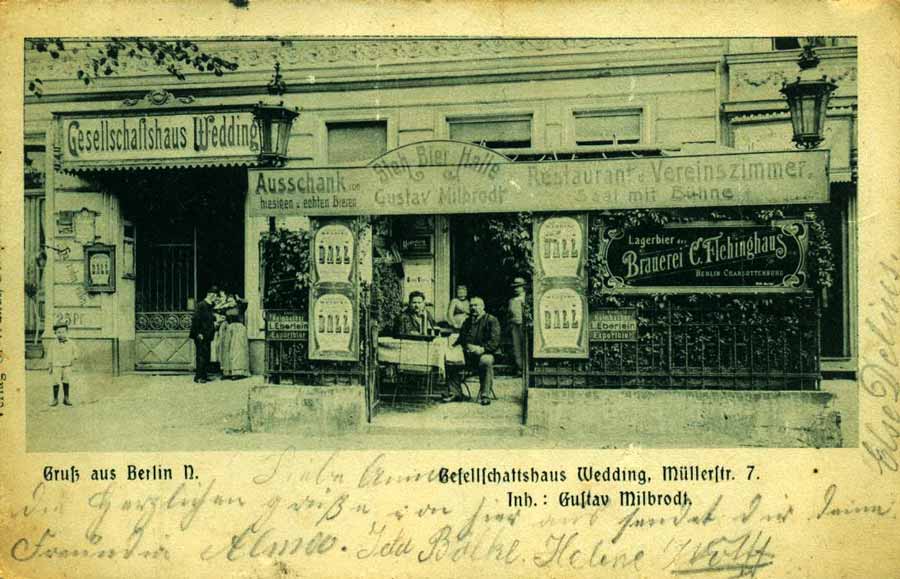 Gesellschaftshaus Wedding
Steh Bier Halle
Ausschank von
hiesigen u. echten Bieren
Gustav Milbrodt
Restaurant u. Vereinszimmer.
Saal mit Bühne
BALL
BALL
BALL
BALL
BALL
Lagerbier der
Brauerei C. Flehinghaus
BERLIN CHARLOTTENBURG
L. Eberlein
Exportbier
L. Eberlein
Exportbier
25 Pf
Gruß aus Berlin N.
Gesellschaftshaus Wedding, Müllerstr. 7.
Inh.: Gustav Milbrodt.
Liebe Anna
die herzlichen grüße von hier aus sendet dir deine
Freundin Alma. Ida Böckl. Helene Wolff
Else Delius.
Verlag